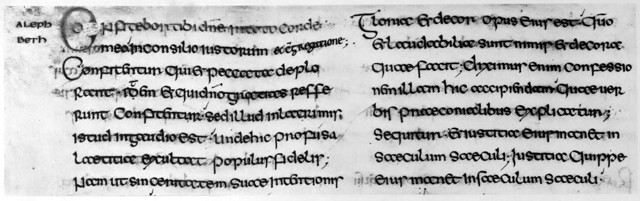 ALEPH
BETH
Confitebor tibi dne in toto corde
meo in consilio iustorum et congregatione;
Confitentur qui et peccata deplo
rant, et qui dno gratias refe
runt confitentur sed illud in lacrimis;
istud in gaudio est. unde hic profusa
laetitia exultat populus fidelis;
nam ut sinceritatem suae intentionis
Gloria et decor opus eius est. quo
et laudabilia sunt nimis et decora
quae facit; diximus enim confessio
nem illam hic accipiendam quae ver
bis praeconialibus explicatur;
sequitur. et iustitia eius manet in
saeculum saeculi; iustitia quippe
eius manet in saeculum saeculi;